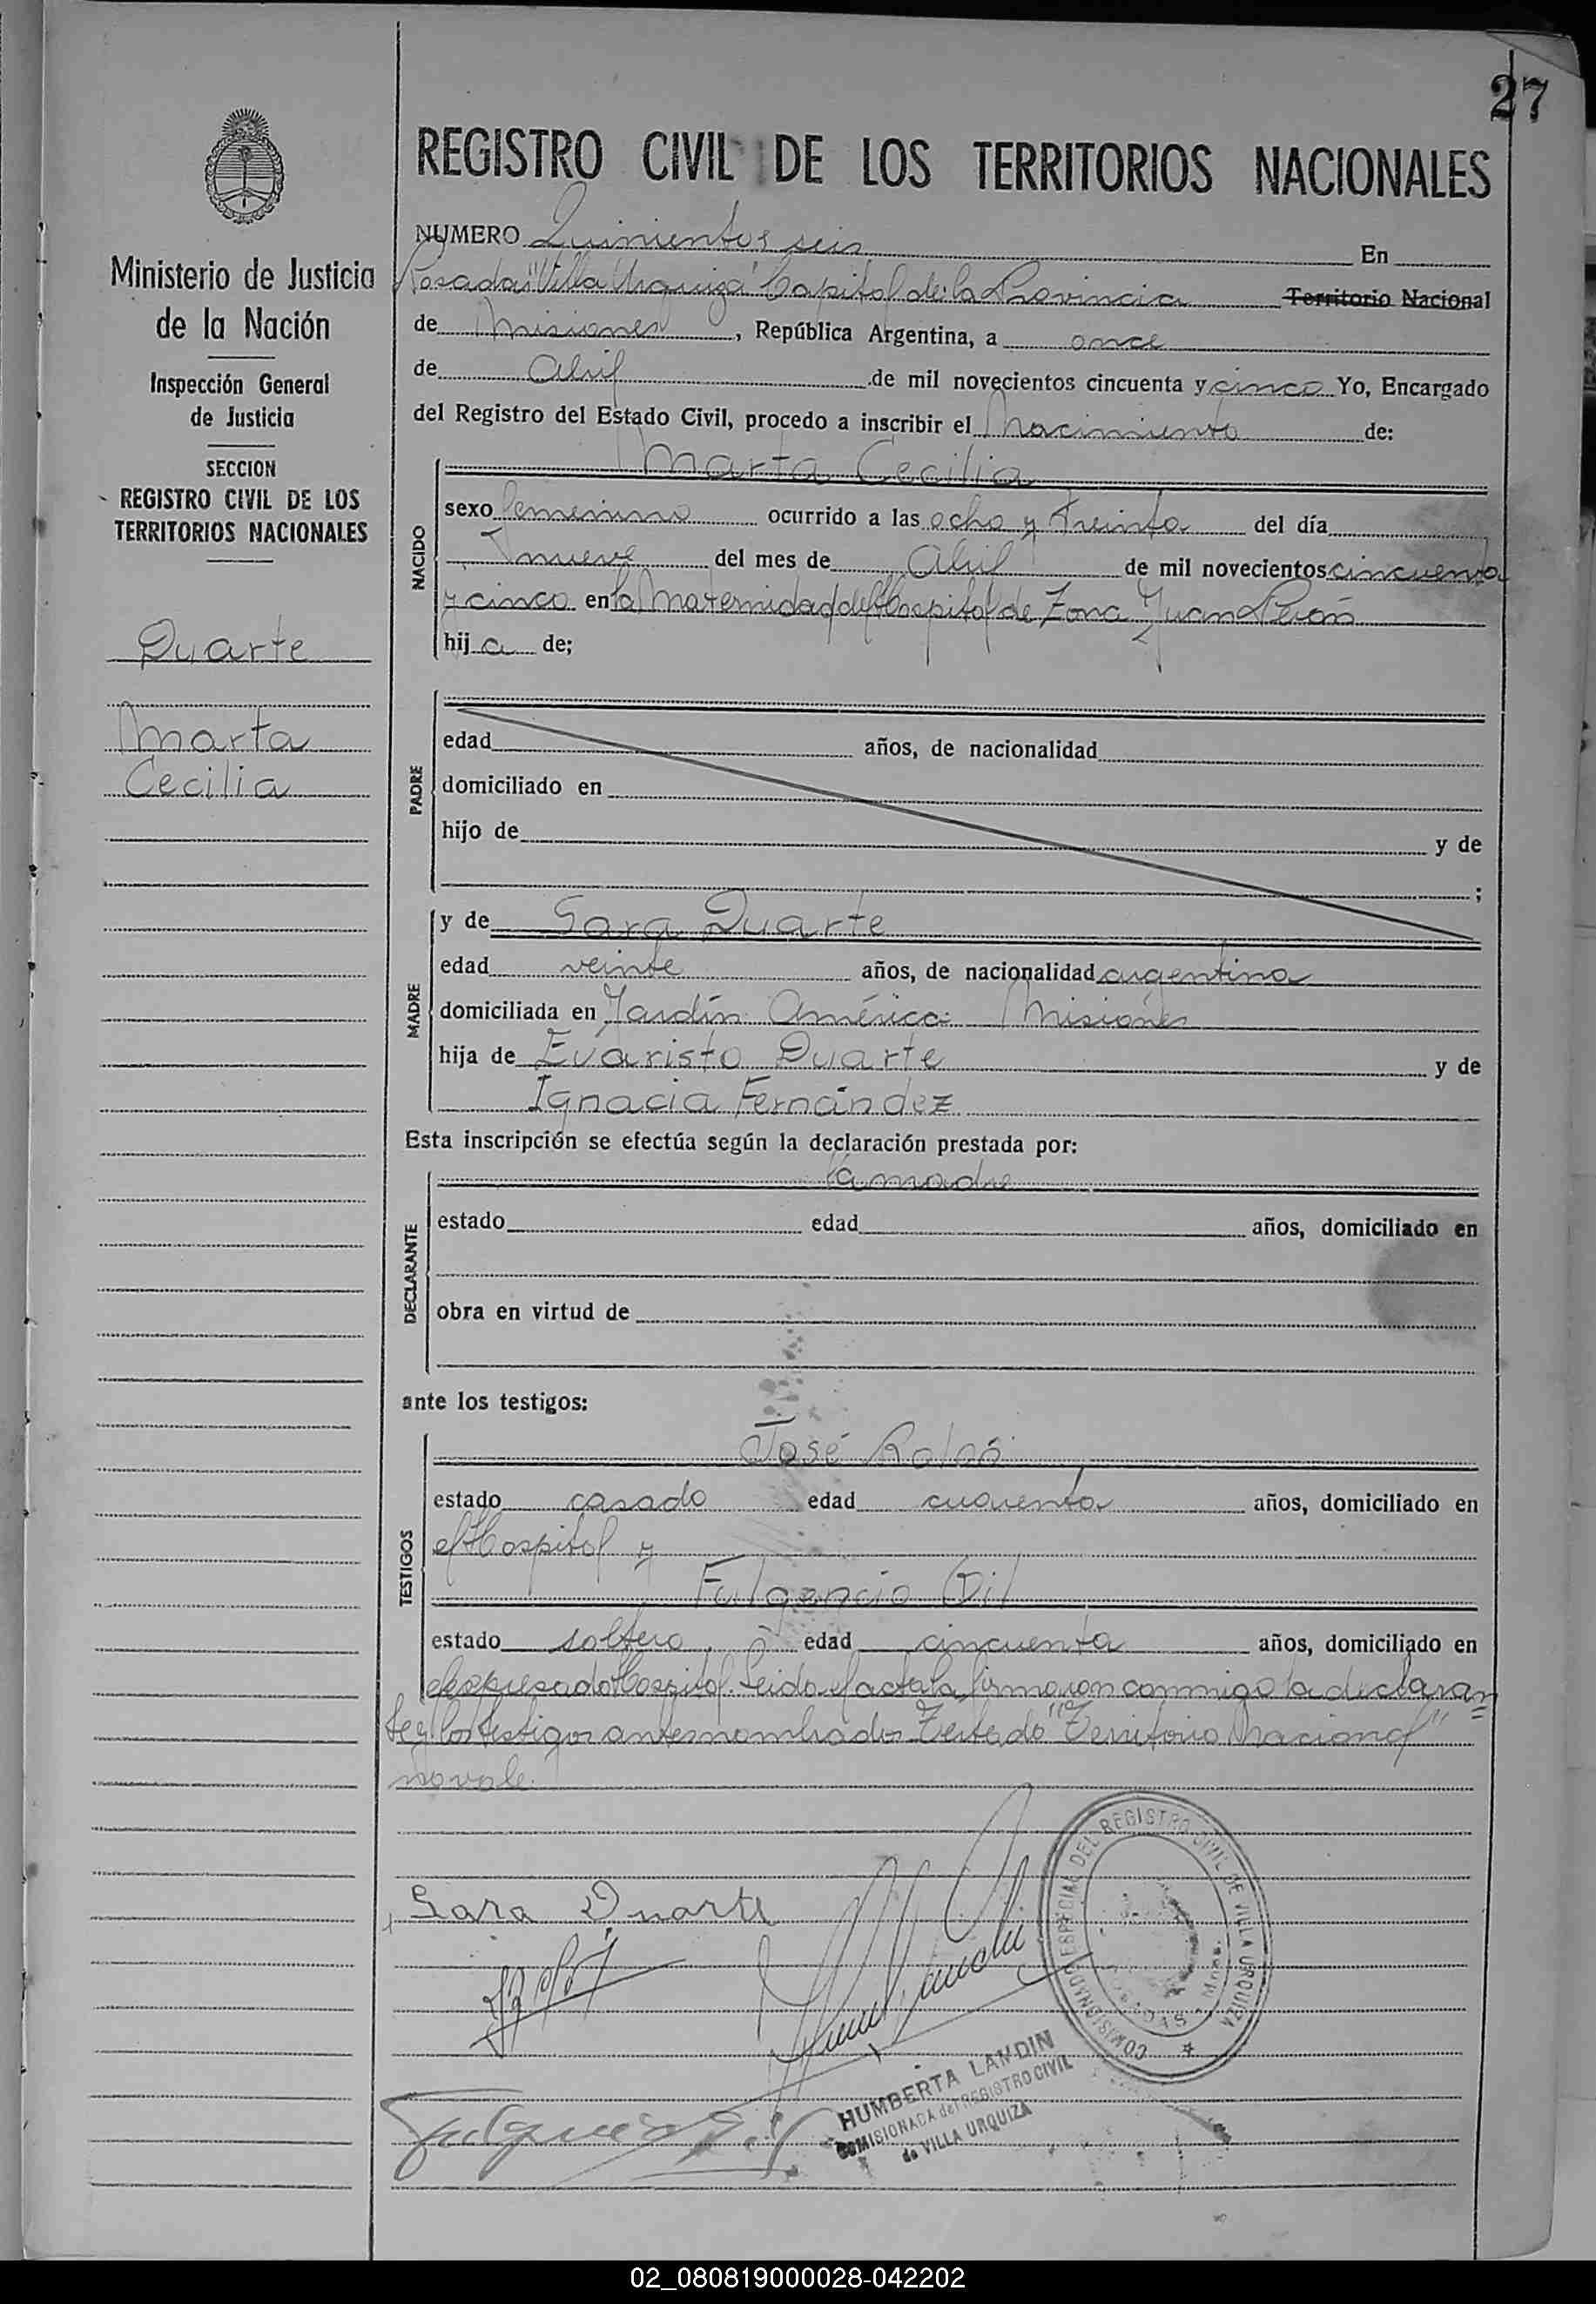 27
REGISTRO CIVIL DE LOS TERRITORIOS NACIONALES
Ministerio de Justicia
de la Nación
Inspección General
de Justicia
SECCION
REGISTRO CIVIL DE LOS
TERRITORIOS NACIONALES
Duarte
Marta
Cecilia
NUMERO Quinientos seis En
Posadas "Villa Urquiza" Capital de la Provincia Territorio Nacional
de Misiones, República Argentina, a once
de Abril de mil novecientos cincuenta y cinco Yo, Encargado
del Registro del Estado Civil, procedo a inscribir el Nacimiento de:
NACIDO
Marta Cecilia
sexo femenino ocurrido a las ocho y treinta del día
nueve del mes de Abril de mil novecientos cincuenta
y cinco en la Maternidad del Hospital de Zona Juan Perón
hija de;
PADRE
edad años, de nacionalidad
domiciliado en
hijo de y de
;
MADRE
y de Sara Duarte
edad veinte años, de nacionalidad argentina
domiciliada en Jardín América Misiones
hija de Evaristo Duarte y de
Ignacia Fernández
Esta inscripción se efectúa según la declaración prestada por:
DECLARANTE
la madre
estado edad años, domiciliado en
obra en virtud de
ante los testigos:
TESTIGOS
José
estado casado edad cuarenta años, domiciliado en
el Hospital y
Fulgencio Gil
estado soltero, edad cincuenta años, domiciliado en
el expresado Hospital. Leida el acta la firmaron conmigo la declaran=
te y los testigos antes nombrados Testado "Territorio Nacional"
no vale.
Sara Duarte
COMISIONADO ESPECIAL DEL REGISTRO CIVIL DE VILLA URQUIZA
POSADAS - Mnes.
HUMBERTA LANDIN
COMISIONADA del REGISTRO CIVIL
de VILLA URQUIZA
Fulgencio Gil
02_080819000028-042202